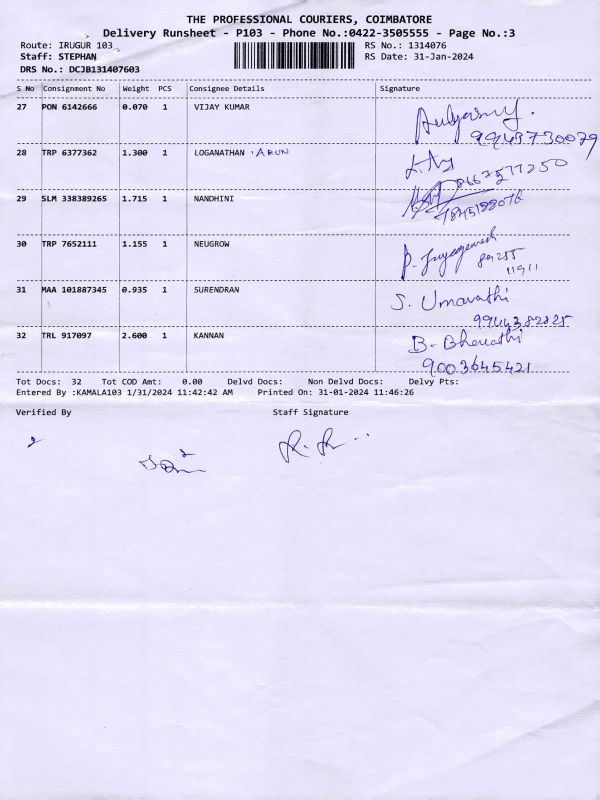 THE PROFESSIONAL COURIERS, COIMBATORE
Delivery Runsheet - P103 - Phone No.:0422-3505555 - Page No.:3
Route: IRUGUR 103 RS No.: 1314076
Staff: STEPHAN RS Date: 31-Jan-2024
DRS No.: DCJB131407603
S No Consignment No Weight PCS Consignee Details Signature
27 PON 6142666 0.070 1 VIJAY KUMAR
9943730079
28 TRP 6377362 1.300 1 LOGANATHAN . ARUN
29 SLM 338389265 1.715 1 NANDHINI
30 TRP 7652111 1.155 1 NEUGROW
31 MAA 101887345 0.935 1 SURENDRAN S. Umavathi
9944382825
32 TRL 917097 2.600 1 KANNAN B. Bharathi
9003645421
Tot Docs: 32 Tot COD Amt: 0.00 Delvd Docs: Non Delvd Docs: Delvy Pts:
Entered By :KAMALA103 1/31/2024 11:42:42 AM Printed On: 31-01-2024 11:46:26
Verified By Staff Signature